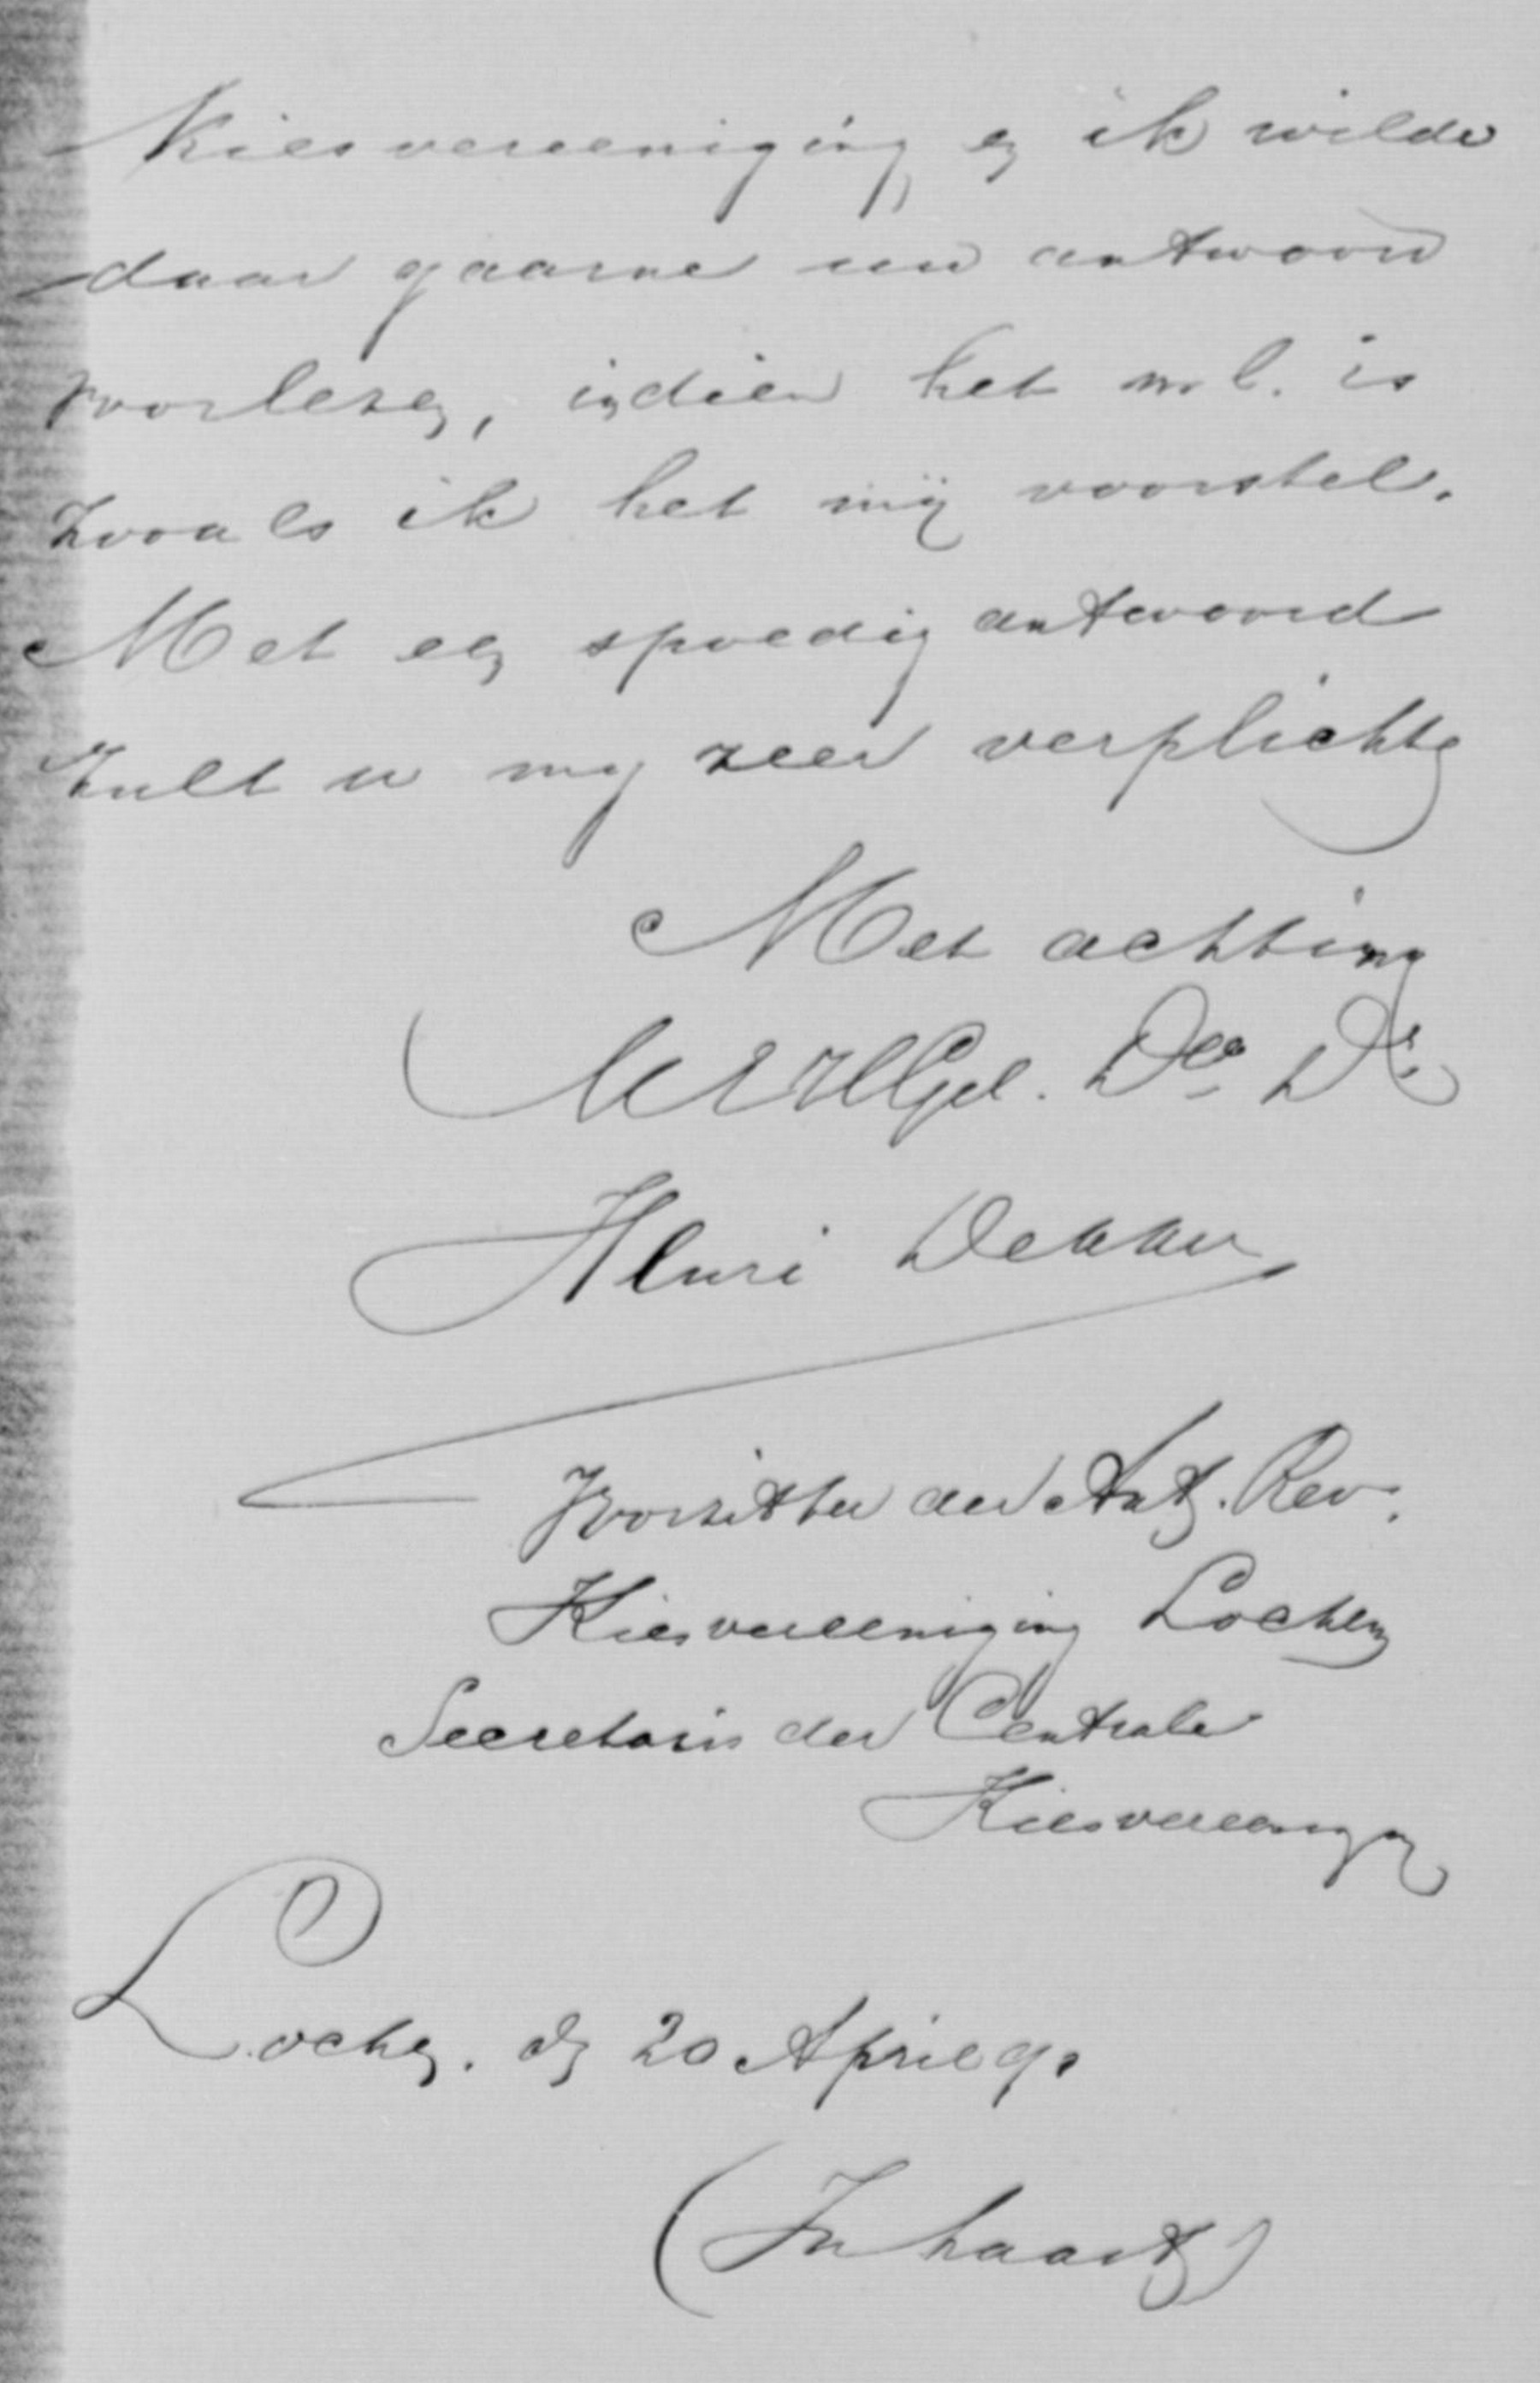 Kiesvereeniging en ik wilde
daar gaarne uw antwoord
voorlezen, indien het n.l. is
zooals ik het mij voorstel.
Met een spoedig antwoord
zult u mij zeer verplichten
Met achting
UWelGel. Dr
Henri Dekker
Voorzitter der Ant. Rev.
Kiesvereeniging Lochem
Secretaris der Centrale
Kiesvereeniging
Lochem. den 20 April 9
(In haast)